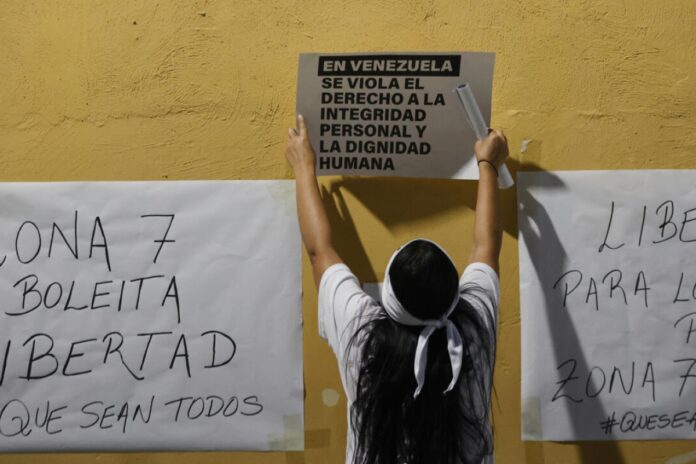 EN VENEZUELA
SE VIOLA EL
DERECHO A LA
INTEGRIDAD
PERSONAL Y
LA DIGNIDAD
HUMANA
ZONA 7
BOLEITA
LIBERTAD
QUE SEAN TODOS
PARA
ZONA 7